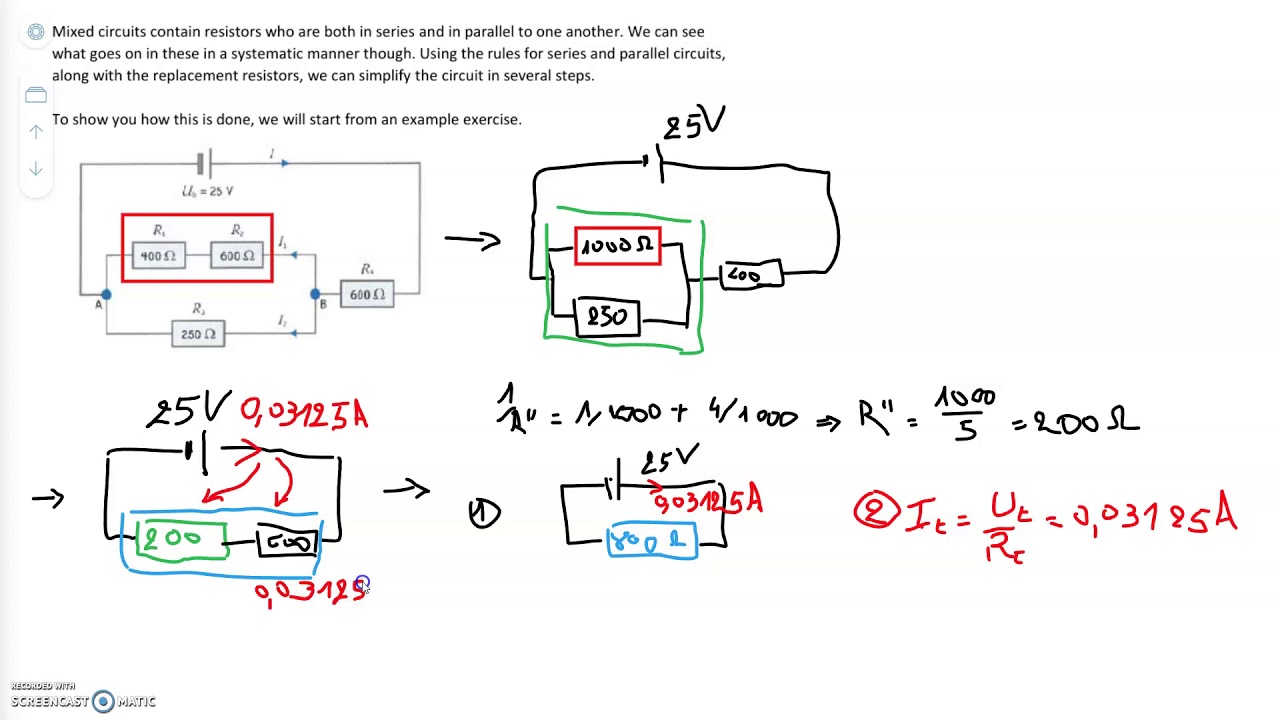 Mixed circuits contain resistors who are both in series and in parallel to one another. We can see
what goes on in these in a systematic manner though. Using the rules for series and parallel circuits,
along with the replacement resistors, we can simplify the circuit in several steps.
To show you how this is done, we will start from an example exercise.
25V
I
U_b = 25 V
R₁ R₂
400 Ω 600 Ω
I₁
R₄
600 Ω
A B
R₃
250 Ω
I₂
1000 Ω
250
25V 0,03125A
1/R'' = 1/1000 + 4/1000 ⇒ R'' = 1000/5 = 200 Ω
200
0,03125
① 25V
0,03125A
800 Ω
② I_t = U_t/R_t = 0,03125A
RECORDED WITH
SCREENCAST MATIC